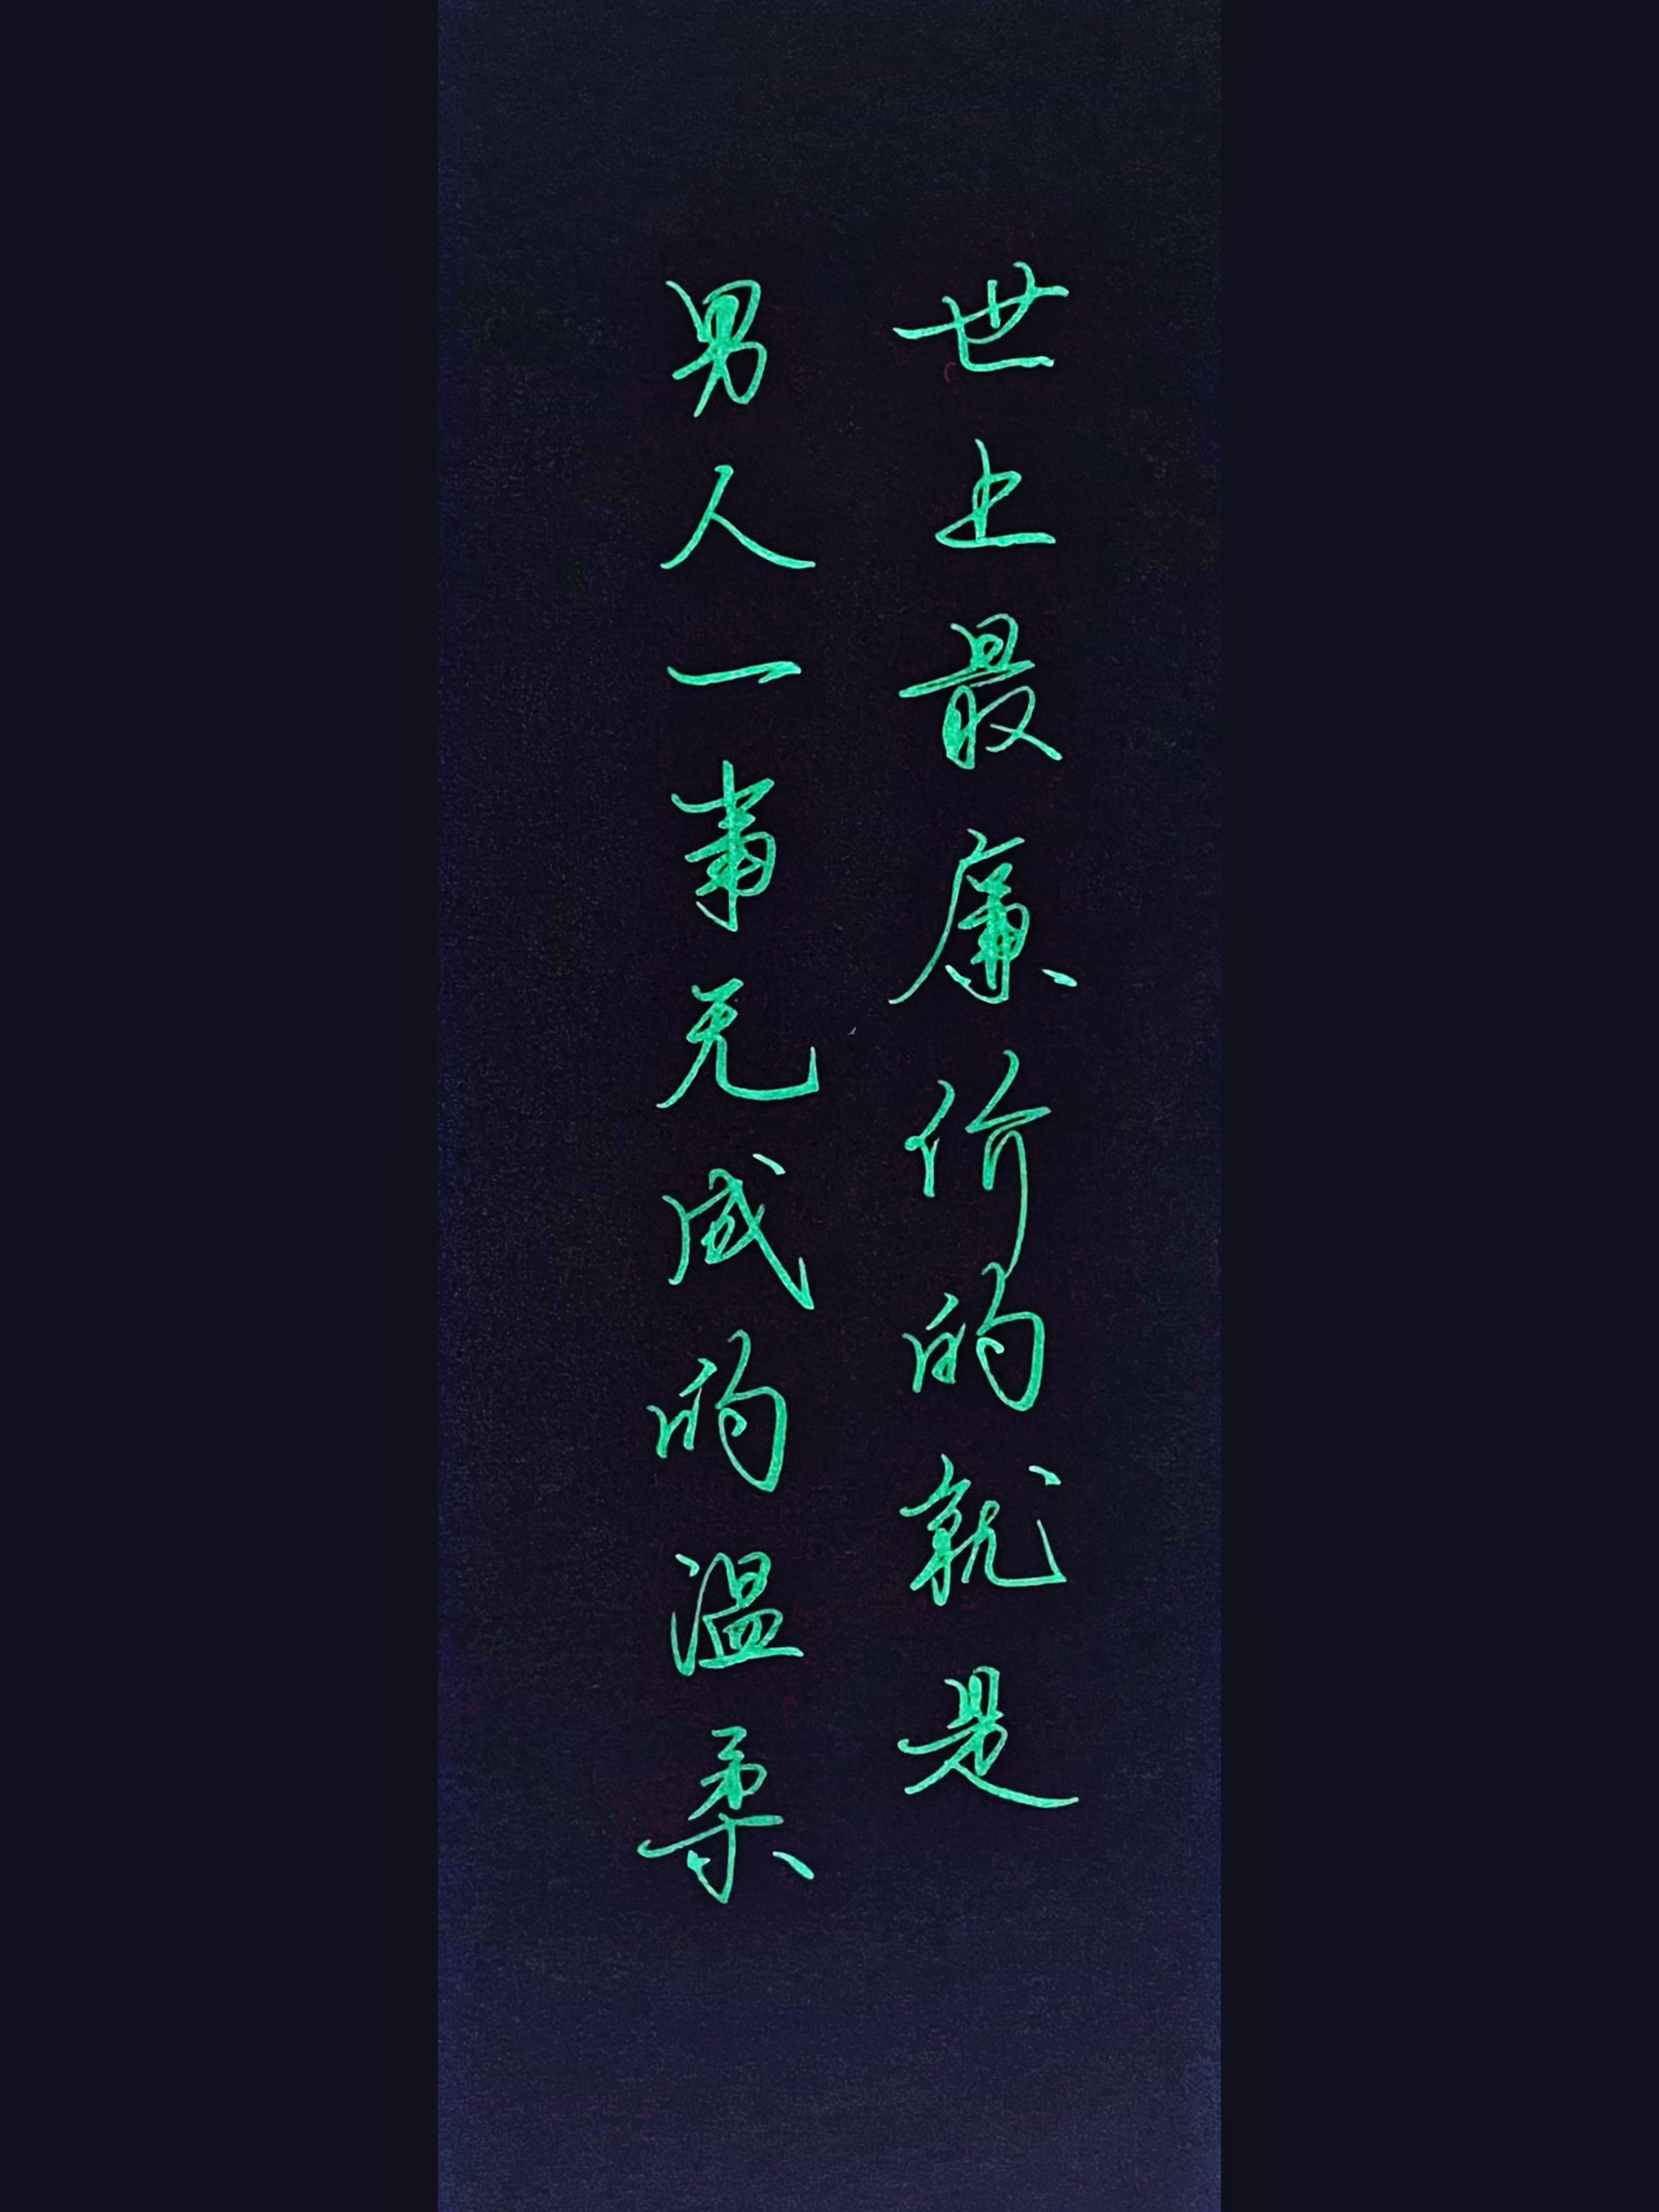 世上最廉价的就是
男人一事无成的温柔